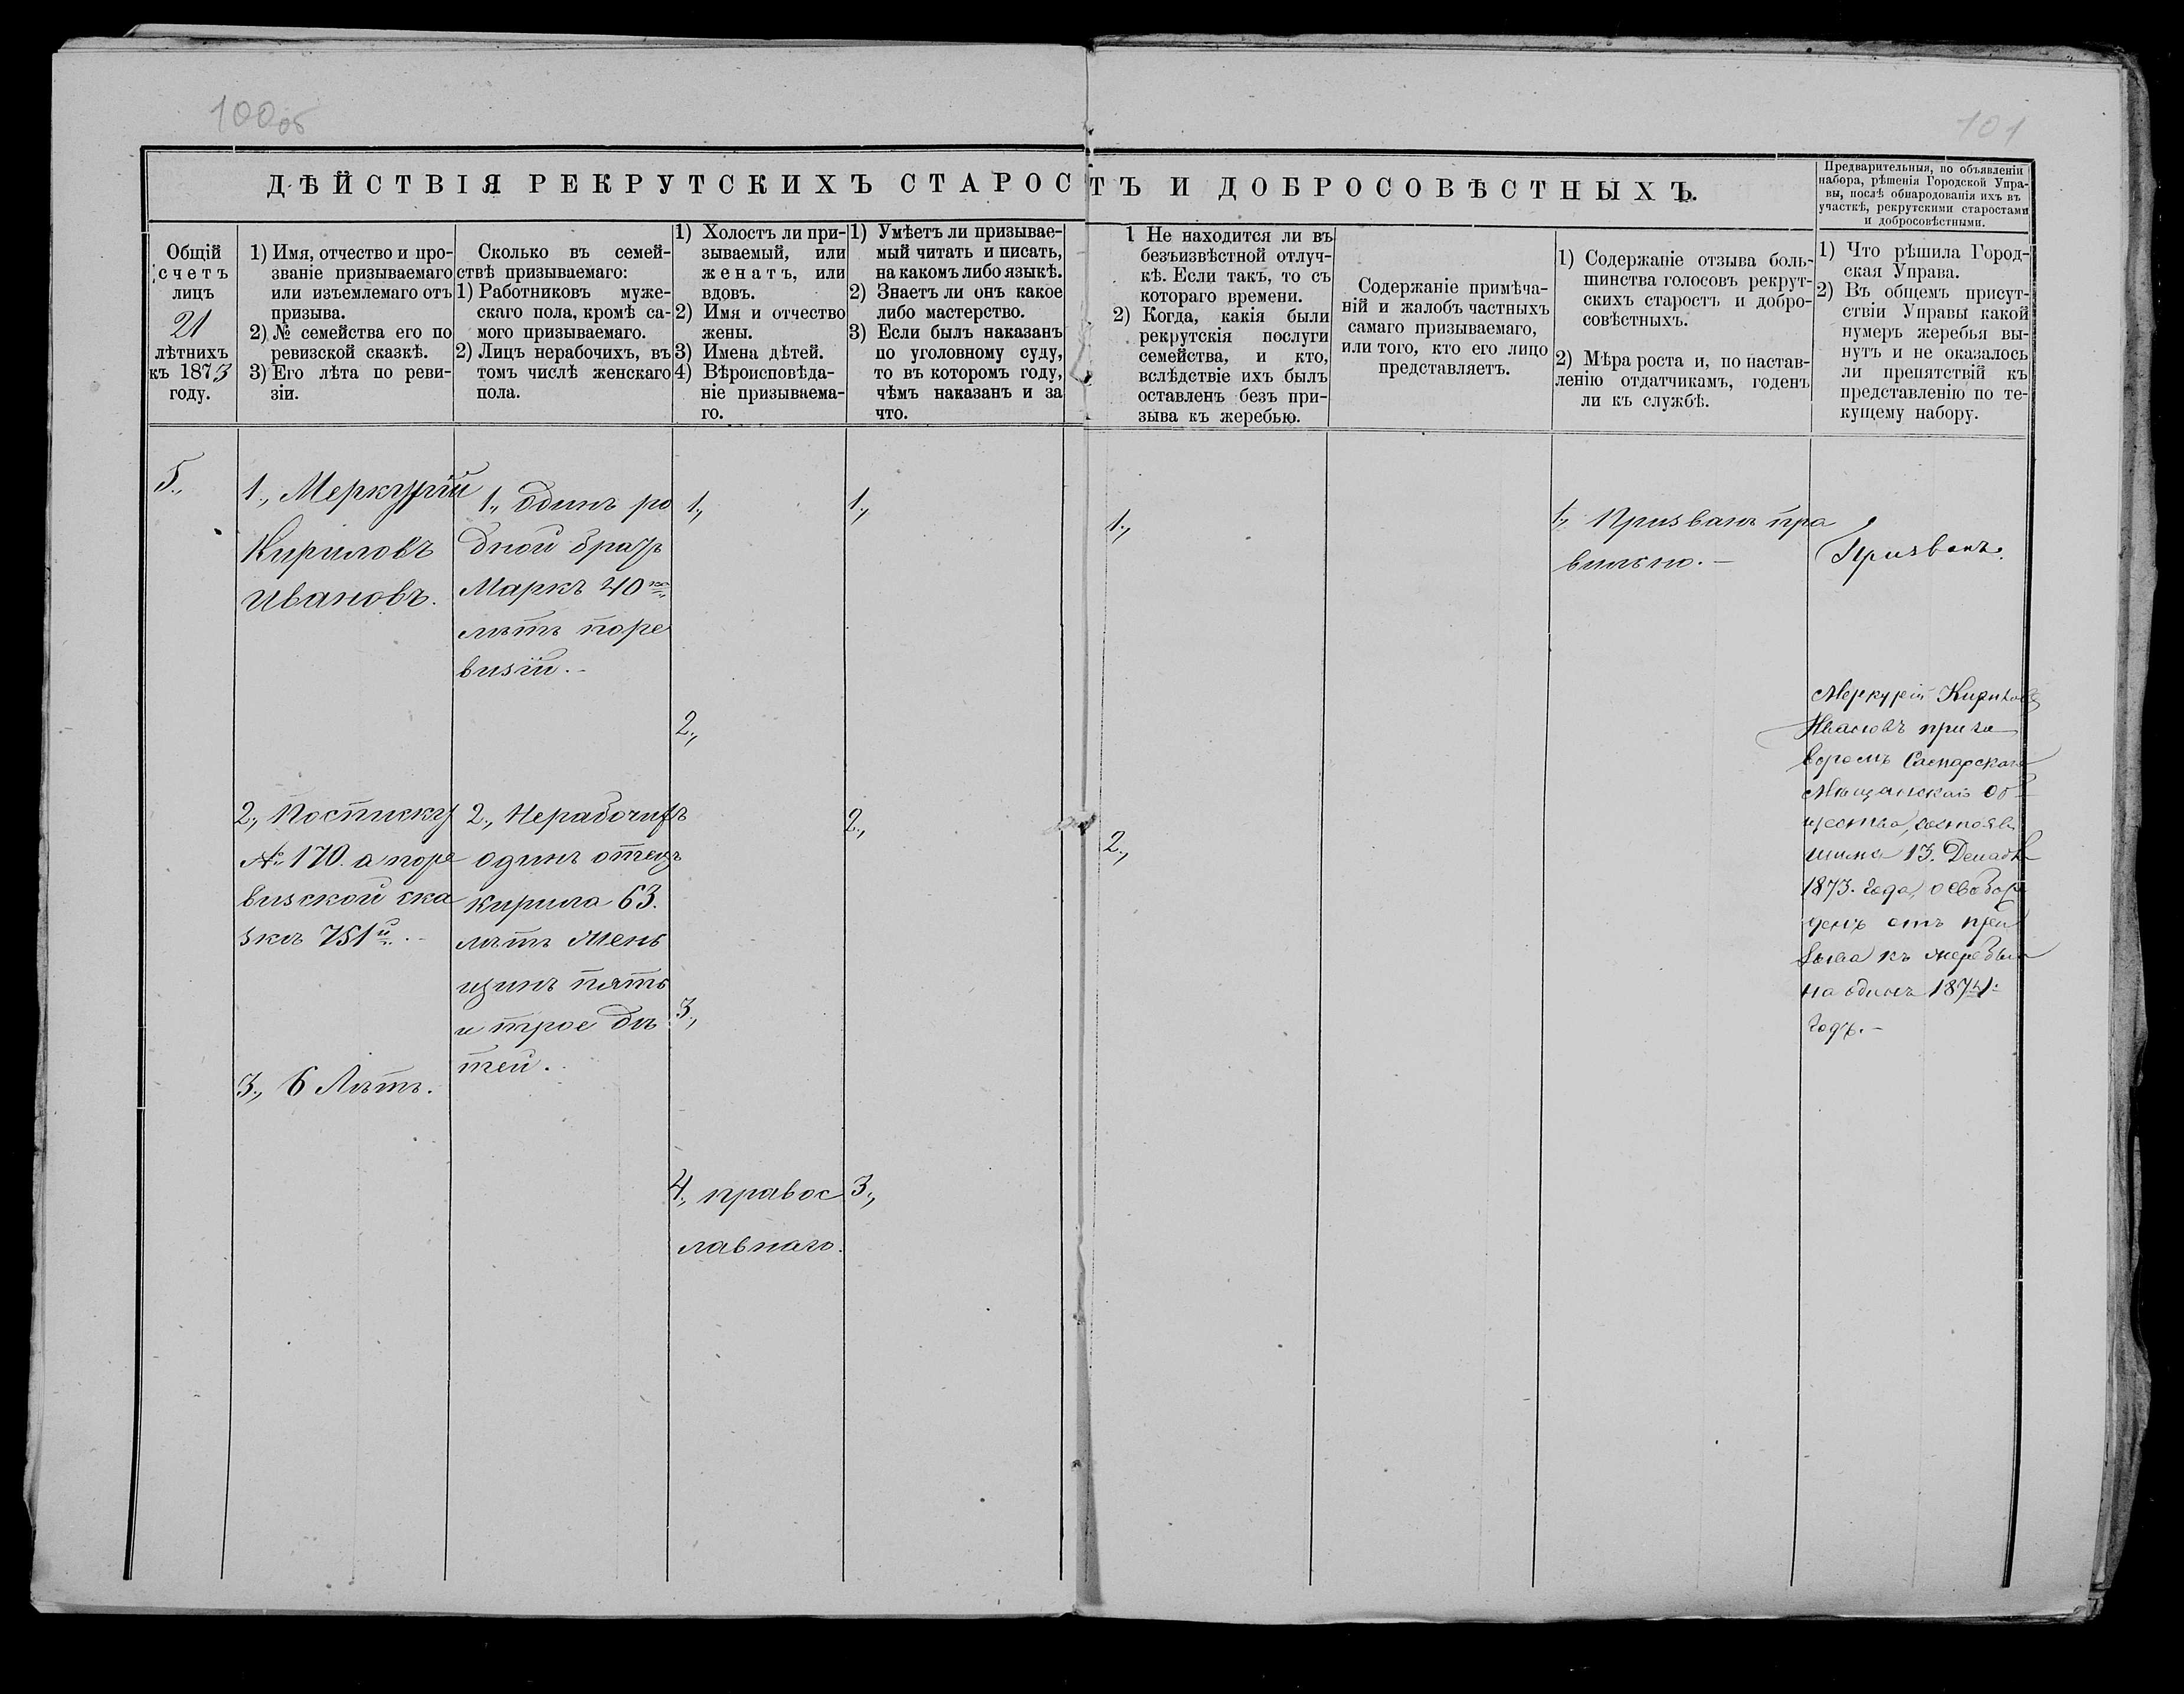 100 об
101
ДѢЙСТВІЯ РЕКРУТСКИХЪ СТАРОСТЪ И ДОБРОСОВѢСТНЫХЪ.
Предварительныя, по объявленіи
набора, рѣшенія Городской Упра-
вы, послѣ обнародованія ихъ въ
участкѣ, рекрутскими старостами
и добросовѣстными.
Общій
счетъ
лицъ
21
лѣтнихъ
къ 1873
году.
1) Имя, отчество и про-
званіе призываемаго
или изъемлемаго отъ
призыва.
2) № семейства его по
ревизской сказкѣ.
3) Его лѣта по реви-
зіи.
Сколько въ семей-
ствѣ призываемаго:
1) Работниковъ муже-
скаго пола, кромѣ са-
мого призываемаго.
2) Лицъ нерабочихъ, въ
томъ числѣ женскаго
пола.
1) Холостъ ли при-
зываемый, или
женатъ, или
вдовъ.
2) Имя и отчество
жены.
3) Имена дѣтей.
4) Вѣроисповѣда-
ніе призываема-
го.
1) Умѣетъ ли призывае-
мый читать и писать,
на какомъ либо языкѣ.
2) Знаетъ ли онъ какое
либо мастерство.
3) Если былъ наказанъ
по уголовному суду,
то въ которомъ году,
чѣмъ наказанъ и за
что.
1 Не находится ли въ
безъизвѣстной отлуч-
кѣ. Если такъ, то съ
котораго времени.
2) Когда, какія были
рекрутскія послуги
семейства, и кто,
вслѣдствіе ихъ былъ
оставленъ безъ при-
зыва къ жеребью.
Содержаніе примѣча-
ній и жалобъ частныхъ
самаго призываемаго,
или того, кто его лицо
представляетъ.
1) Содержаніе отзыва боль-
шинства голосовъ рекрут-
скихъ старостъ и добро-
совѣстныхъ.
2) Мѣра роста и, по настав-
ленію отдатчикамъ, годенъ
ли къ службѣ.
1) Что рѣшила Город-
ская Управа.
2) Въ общемъ присут-
ствіи Управы какой
нумеръ жеребья вы-
нутъ и не оказалось
ли препятствій къ
представленію по те-
кущему набору.
5.,
1., Меркурій
Кириловъ
Ивановъ.
2., Постиску
№ 170. а поре
визской ска
зкѣ 751й. -
3., 6 Лѣтъ.
1., один ро
дной братъ
Маркъ 20ти
лѣтъ поре
визіи. -
2., Нерабочихъ
одинъ отецъ
кирила 63.
лѣтъ жень
щинъ пять
и трое дѣ
тей.
1.,
2.,
3.,
4., правос
лавнаго.
1.,
2.,
3.,
1.,
2.,
1., Призванъ пра
вильно. -
Призванъ.
Меркурій Кириловъ
Ивановъ приго
воромъ Самарскаго
Мѣщанскаго Об-
щества, состояв
шимся 13. Декабря
1873. года, освобож
денъ отъ при
зыва къ жеребью
на одинъ 1874.
годъ. -